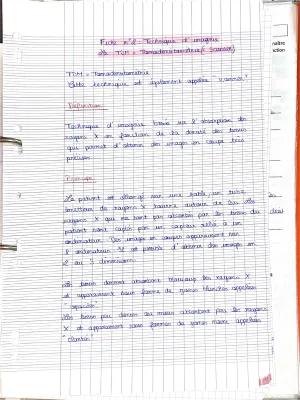 Fiche n°2 - Technique d'imagerie
La TDM = Tomodensitométrie (Scanner)
TDM = Tomodensitométrie
Cette technique est également appelée "scanner"
Définition
Technique d'imagerie basée sur l'absorption des
rayons X en fonction de la densité des tissus
qui permet d'obtenir des images en coupe très
précises
Principe
Le patient est allongé sur une table, un tube
émetteur de rayons X tourne autour de lui. Les
rayons X qui ne sont pas absorbés par les tissus du
patient sont captés par un capteur relié à un
ordinateur. Des images en coupe apparaissent sur
l'ordinateur. Il est possible d'obtenir des images en
2 ou 3 dimensions.
Les tissus denses absorbent beaucoup les rayons X
et apparaissent sous forme de zones blanches appelées
"opacités"
Les tissus peu denses ou mous absorbent peu les rayons
X et apparaissent sous formes de zones noires appelées
"clartés"